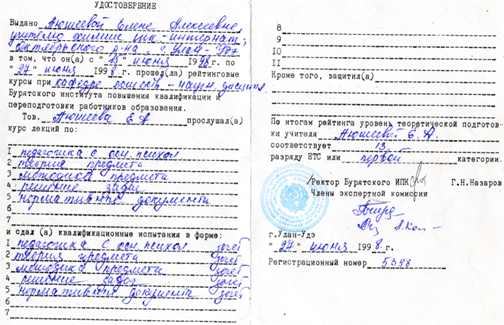 УДОСТОВЕРЕНИЕ
Выдано Аюшеевой Елене Алексеевне,
учителю химии шк.-интернат,
Октябрьского р-на, г. Улан-Удэ
в том, что он(а) с " 15 " июня 1998г. по
" 27 " июня 1998 г. прошел(ла) рейтинговые
курсы при кафедре естеств.-научн. дисциплин
Бурятского института повышения квалификации и
переподготовки работников образования.
Тов. Аюшеева Е.А. прослушал(а)
курс лекций по:
1 педагогика с осн. психол
2 теория предмета
3 методика предмета
4 решение задач
5 нормативные документы
6
7
и сдал (а) квалификационные испытания в форме:
1 педагогика с осн. психол зачёт
2 теория предмета зачёт
3 методика предмета зачёт
4 решение задач зачёт
5 нормативные документы зачёт
6
7
8
9
10
11
Кроме того, защитил(а)
По итогам рейтинга уровень теоретической подготов-
ки учителя Аюшеевой Е.А.
соответствует 13
разряду ЕТС или первой категории.
Ректор Бурятского ИПК Г.Н.Назаров
Члены экспертной комиссии
г.Улан-Удэ
" 27 " июня 1998 г.
Регистрационный номер 5398